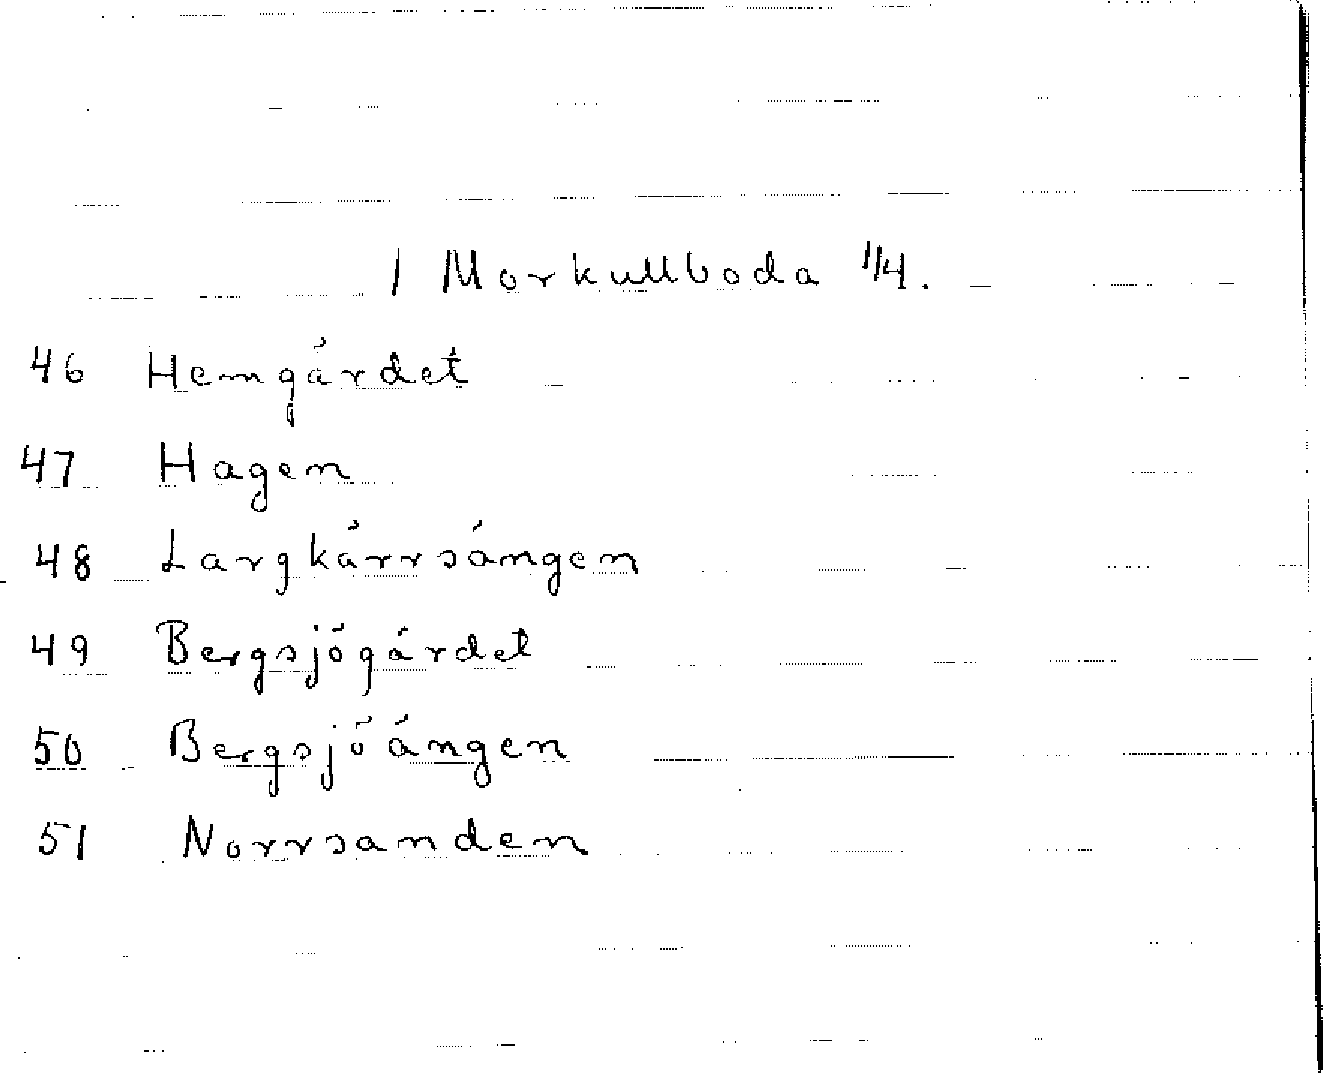 1 Morkullboda 1/4.
46 Hemgärdet
47 Hagen
48 Largkärrsängen
49 Bergsjögärdet
50 Bergsjöängen
51 Norrsanden